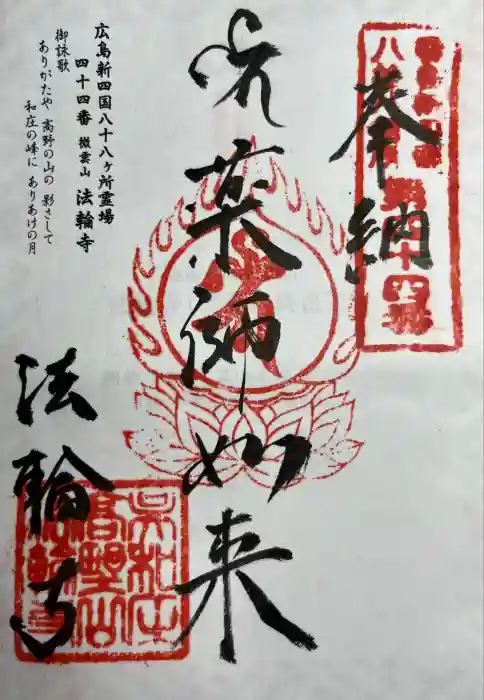 奉納
薬師如来
法輪寺
広島新四国八十八ヶ所霊場
四十四番 微雲山 法輪寺
御詠歌
ありがたや 高野の山の 影さして
和庄の峰に ありあけの月
呉和庄
高野山
法輪寺